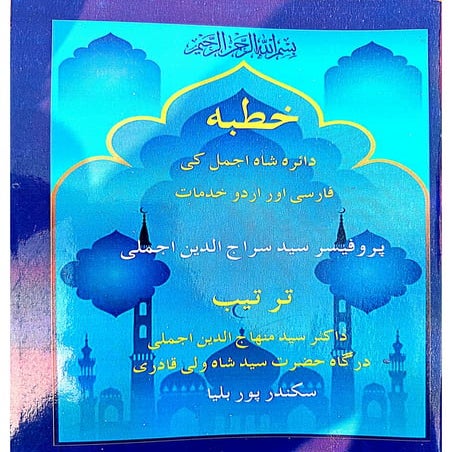 بسم اللہ الرحمن الرحیم
خطبہ
دائرہ شاہ اجمل کی
فارسی اور اردو خدمات
پروفیسر سید سراج الدین اجملی
ترتیب
ڈاکٹر سید منہاج الدین اجملی
درگاہ حضرت سید شاہ ولی قادری
سکندر پور بلیا